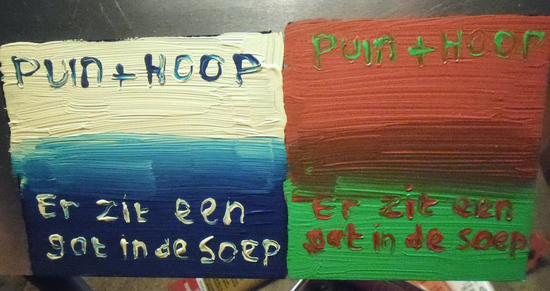 PUIN + HOOP
Er zit een
gat in de SOEP
PUIN + HOOP
Er zit een
gat in de soep